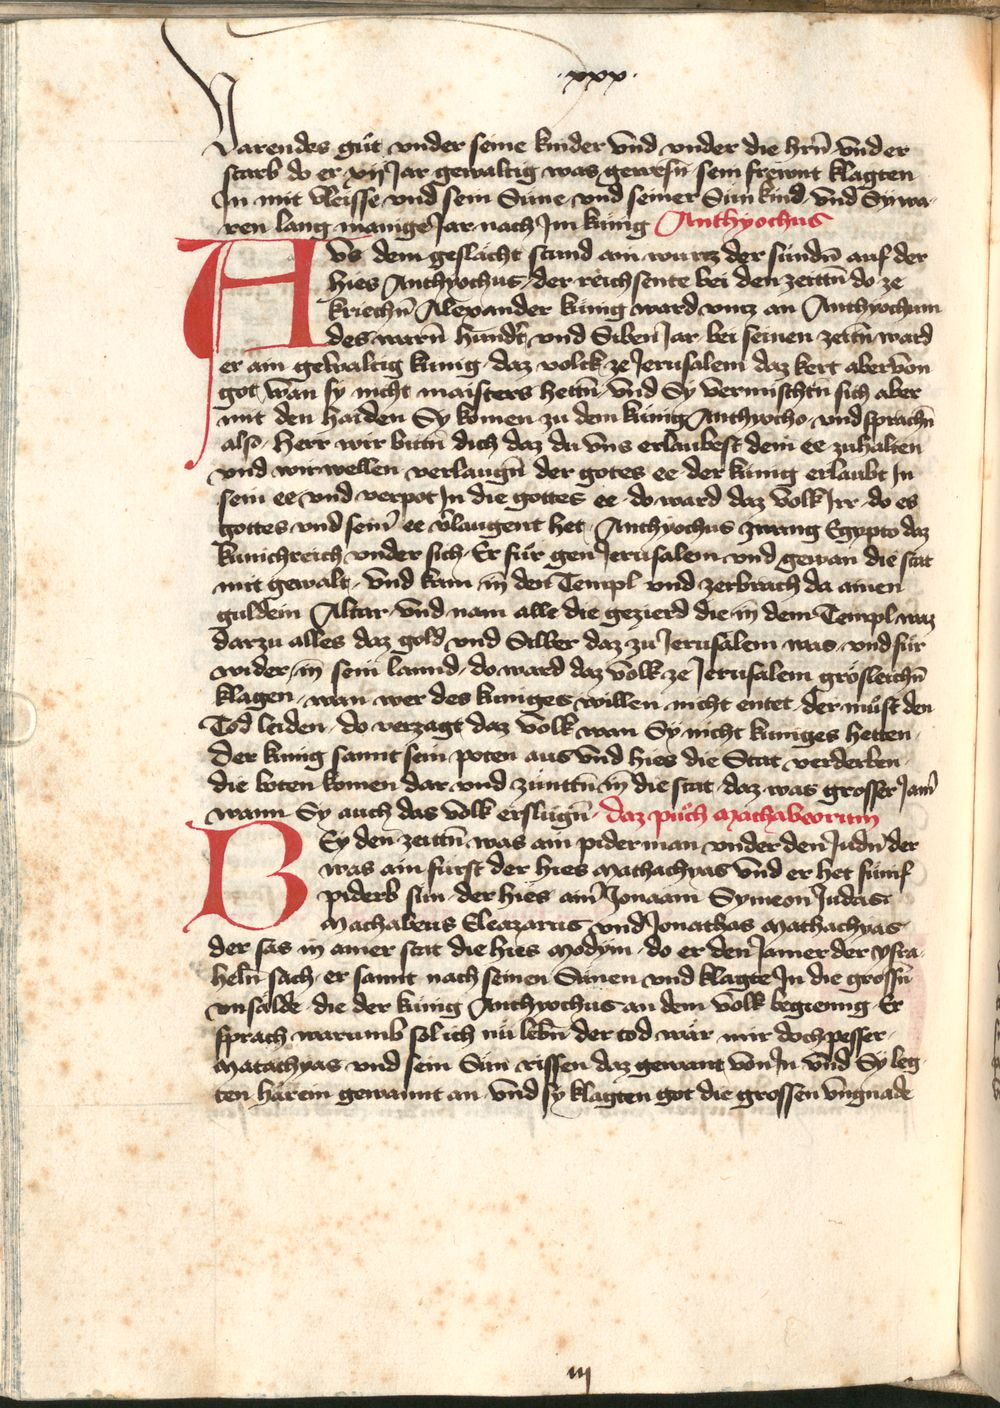 ·xxx·
Varendes gůt vnder seine kinder vnd vnder die hrn̄ vnd er
starb do er xij Jar gewaltig was gewesn̄ sein frewnt klagten
In mit vleisse vnd sein Süne vnd seiner Sün kind vnd Sy wa-
ren lang manige Jar nach Im künig Anthyochus
Aus dem geslächt stund ain wurtz der sündn̄ auf der
hies Anthyochus der reichsente bei den zeittn̄ do ze
kriechn̄ Alexander künig ward vntz an Anthyochum
des warn̄ hundt̄ und Siben Jar bei seinen zeittn̄ ward
er ain gewaltig künig daz volck ze Jerusalem daz kert aber von
got wan sy nicht maisters hettn̄ vnd Sy vermischtn̄ sich aber
mit den haiden Sy komen zu dem künig Anthyocho vnd sprachn̄
also herr wir bittn̄ dich daz du vns erlaubest dein ee zuhalten
vnd wir wellen verlaugn̄ der gotes ee der künig erlaubt In
sein ee vnd verpot In die gottes ee do ward daz volk Irr do es
gottes vnd sein̄ ee v̄laugent het Anthyochus zwang Egypto daz
künichreich vnder sich Er für gen Jerusalem vnd gewan die stat
mit gewalt vnd kam in den Templ vnd zerbrach da ainen
guldein Altar vnd nam alle die gezierd die in dem Templ waz
darzu alles daz gold vnd Silber daz zu Jerusalem was vnd für
wider in sein lannd do ward daz volk ze Jerusalem grösleichn̄
klagen wan wer des küniges willen nicht entet der můst den
Tod leiden do verzagt daz volk wan Sy nicht küniges hetten
Der künig sannt sein poten aus vnd hies die Stat verderben
die boten komen dar vnd zünttn̄ in die stat daz was grosser Jam̄
wann Sy auch das volk erslügn̄ daz půch Machabeorum
BSy den zeittn̄ was ain piderman vnder den Judn̄ der
was ain fürst der hies Mathachyas vnd er het fünf
piderb sün der hies ain̄ Jonaam Symeon Judas
Machabeus Eleazarus vnd Jonathas Mathachyas
der sas in ainer stat die hies Modym do er den Jamer der ysra-
heln̄ sach er sannt nach seinen Sünen vnd klagte In die grossn̄
vnsälde die der künig Anthyochus an dem volk begieng Er
sprach warumb sol ich nü lebn̄ der tod wär mir doch pesser
Matachyas vnd sein Sün rissen daz gewant von In vnd Sy leg-
ten härein gewannt an vnd sy klagten got die grossen vngnade
iij